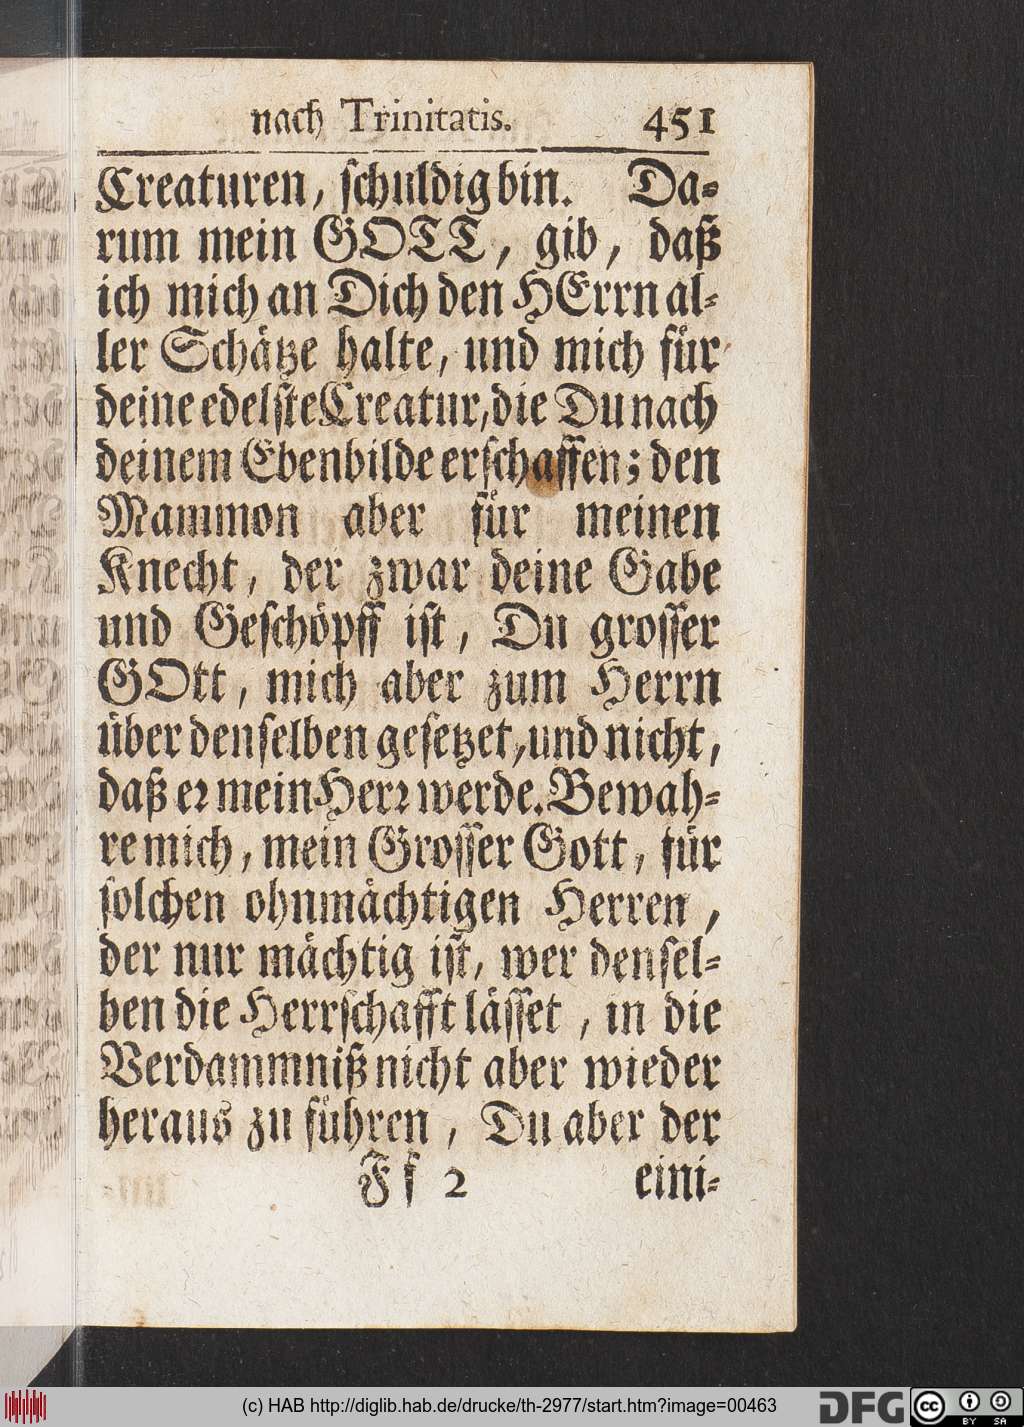 nach Trinitatis. 451
Creaturen, ſchuldig bin. Da⸗
rum mein GOTT, gib, daß
ich mich an Dich den HErrn al⸗
ler Schätze halte, und mich für
deine edelſte Creatur, die Du nach
deinem Ebenbilde erſchaffen; den
Mammon aber für meinen
Knecht, der zwar deine Gabe
und Geſchöpff iſt, Du groſſer
GOtt, mich aber zum Herrn
über denſelben geſetzet, und nicht,
daß er mein Herr werde. Bewah⸗
re mich, mein Groſſer Gott, für
ſolchen ohnmächtigen Herren,
der nur mächtig iſt, wer denſel⸗
ben die Herrſchafft läſſet, in die
Verdammniß nicht aber wieder
heraus zu führen, Du aber der
Ff 2 eini⸗
(c) HAB http://diglib.hab.de/drucke/th-2977/start.htm?image=00463
DFG
cc BY SA